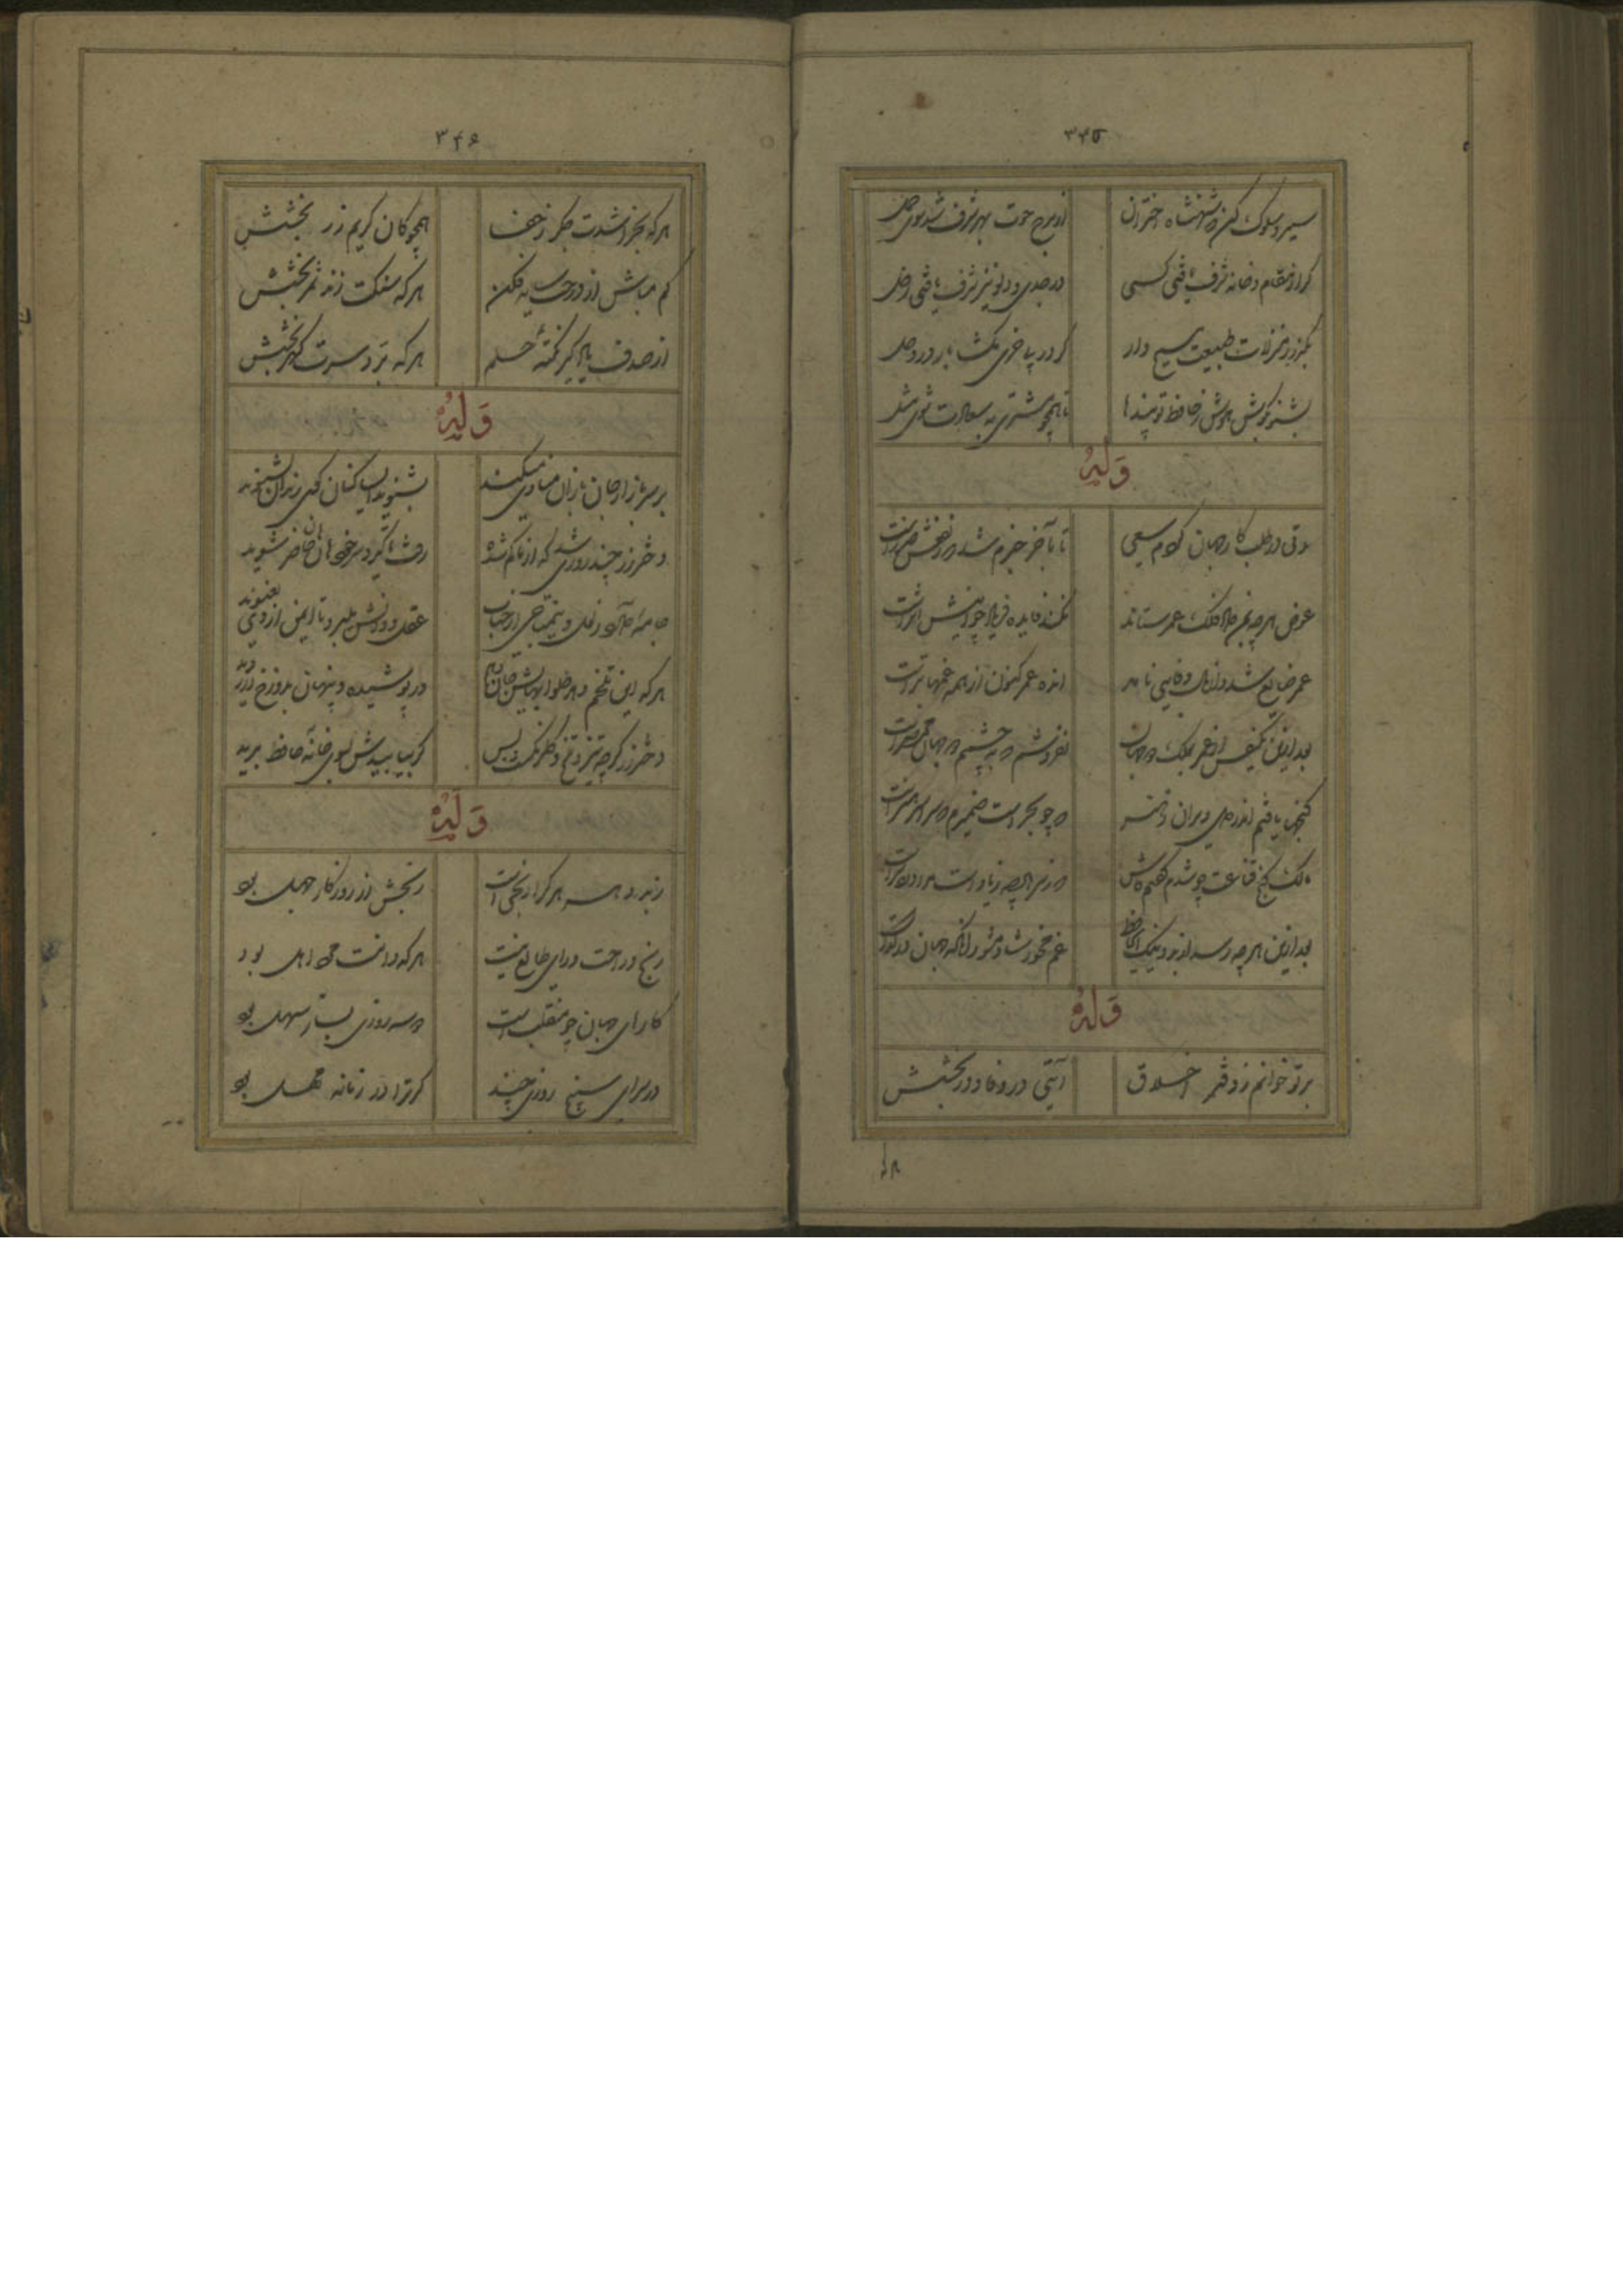 ۳۴۵
سیر و سلوک کن چو شهنشاه اختران
از برج حوت بهر شرف شد سوی حمل
گر از مقام و خانه شرف یافتی کسی
در جدی و دلو نیز شرف یافتی زحل
بگذر ز منزلات طبیعت مسیح وار
خر در
بشنو بگوش هوش ز حافظ تو پند را
تا همچو مشتری به سعادت شوی مثل
وله
مدتی در طلب کار جهان کردم سعی
تا بآخر خبرم شد که نفعش ضررست
عوض هر چه بمن داد فلک عمر ستاند
نکند فایده فریاد چو اینش اثرست
عمر ضایع شد و از مال وفایی نامد
انده عمر کنون از همه غمها بترست
بعد ازین یکنفس از عمر بملک دو جهان
نفروشم که به چشمم دو جهان مختصرست
گنجها یافتم اندر دل ویران ز هنر
که چو بحر است ضمیرم که سراسر گهرست
مالک گنج قناعت چو شدم گفتم فاش
هر که را سیم زیاد است
بعد ازین هر چه رسد از بد و نیک ای حافظ
غم مخور شاد مشو زانکه جهان در گذرست
وله
بر تو خوانم ز دفتر اخلاق
آیتی در وفا و در بخشش
هر که
۳۴۶
هر که بخراشدت جگر ز جفا
همچو کان کریم زر بخشش
کم مباش از درخت سایه فکن
هر که سنگت زند ثمر بخشش
از صدف یاد گیر نکتهٔ حلم
هر که برد سرت گهر بخشش
وله
بر سر بازار جانبازان منادی میکنند
بشنوید ای ساکنان کوی رندان بشنوید
دختر رز چند روزی شد که از ما گم شده
رفت تا گیرد سر خود هان و هان حاضر شوید
جامه دارد ز لعل و نیمتاجی از حباب
عقل و دانش میبرد تا ایمن از وی نغنوید
هر که این تلخم دهد حلوا بهایش جان دهم
ور بود پوشیده و پنهان بدوزخ در روید
دختر رز گرچه تیز و تلخ و گلرنگ است و بس
گر بیابیدش بسوی خانهٔ حافظ برید
وله
ز بد دهر هر کرا رنجی است
رنجش از روزگار جهل بود
رنج و راحت ورای طالع نیست
هر که دانست مرد اهل بود
کارهای جهان چو منقلب است
دو سه روزی بساز سهل بود
در سرای سپنج روزی چند
گر ترا در زمانه مهل بود